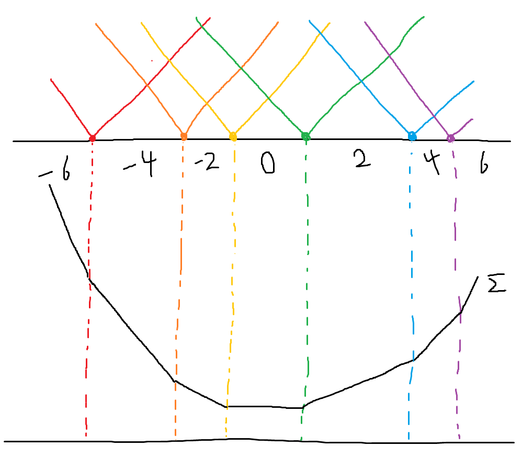 -6 -4 -2 0 2 4 6
Σ